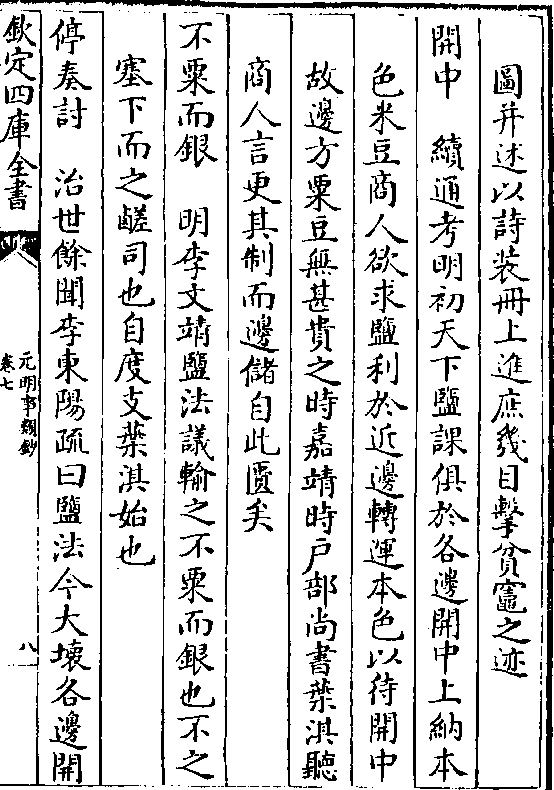 圖并述以詩裝冊上進庶幾目擊貧竈之迹
開中　續通考明初天下鹽課俱於各邊開中上納本
色米豆商人欲求鹽利於近邊轉運本色以待開中
故邊方粟豆無甚貴之時嘉靖時戸部尚書葉淇聽
商人言更其制而邊儲自此匱矣
不粟而銀　明李文靖鹽法議輸之不粟而銀也不之
塞下而之鹾司也自度支葉淇始也
停奏討　治世餘聞李東陽疏曰鹽法今大壞各邊開
欽定四庫全書
元明事類鈔
卷七
八